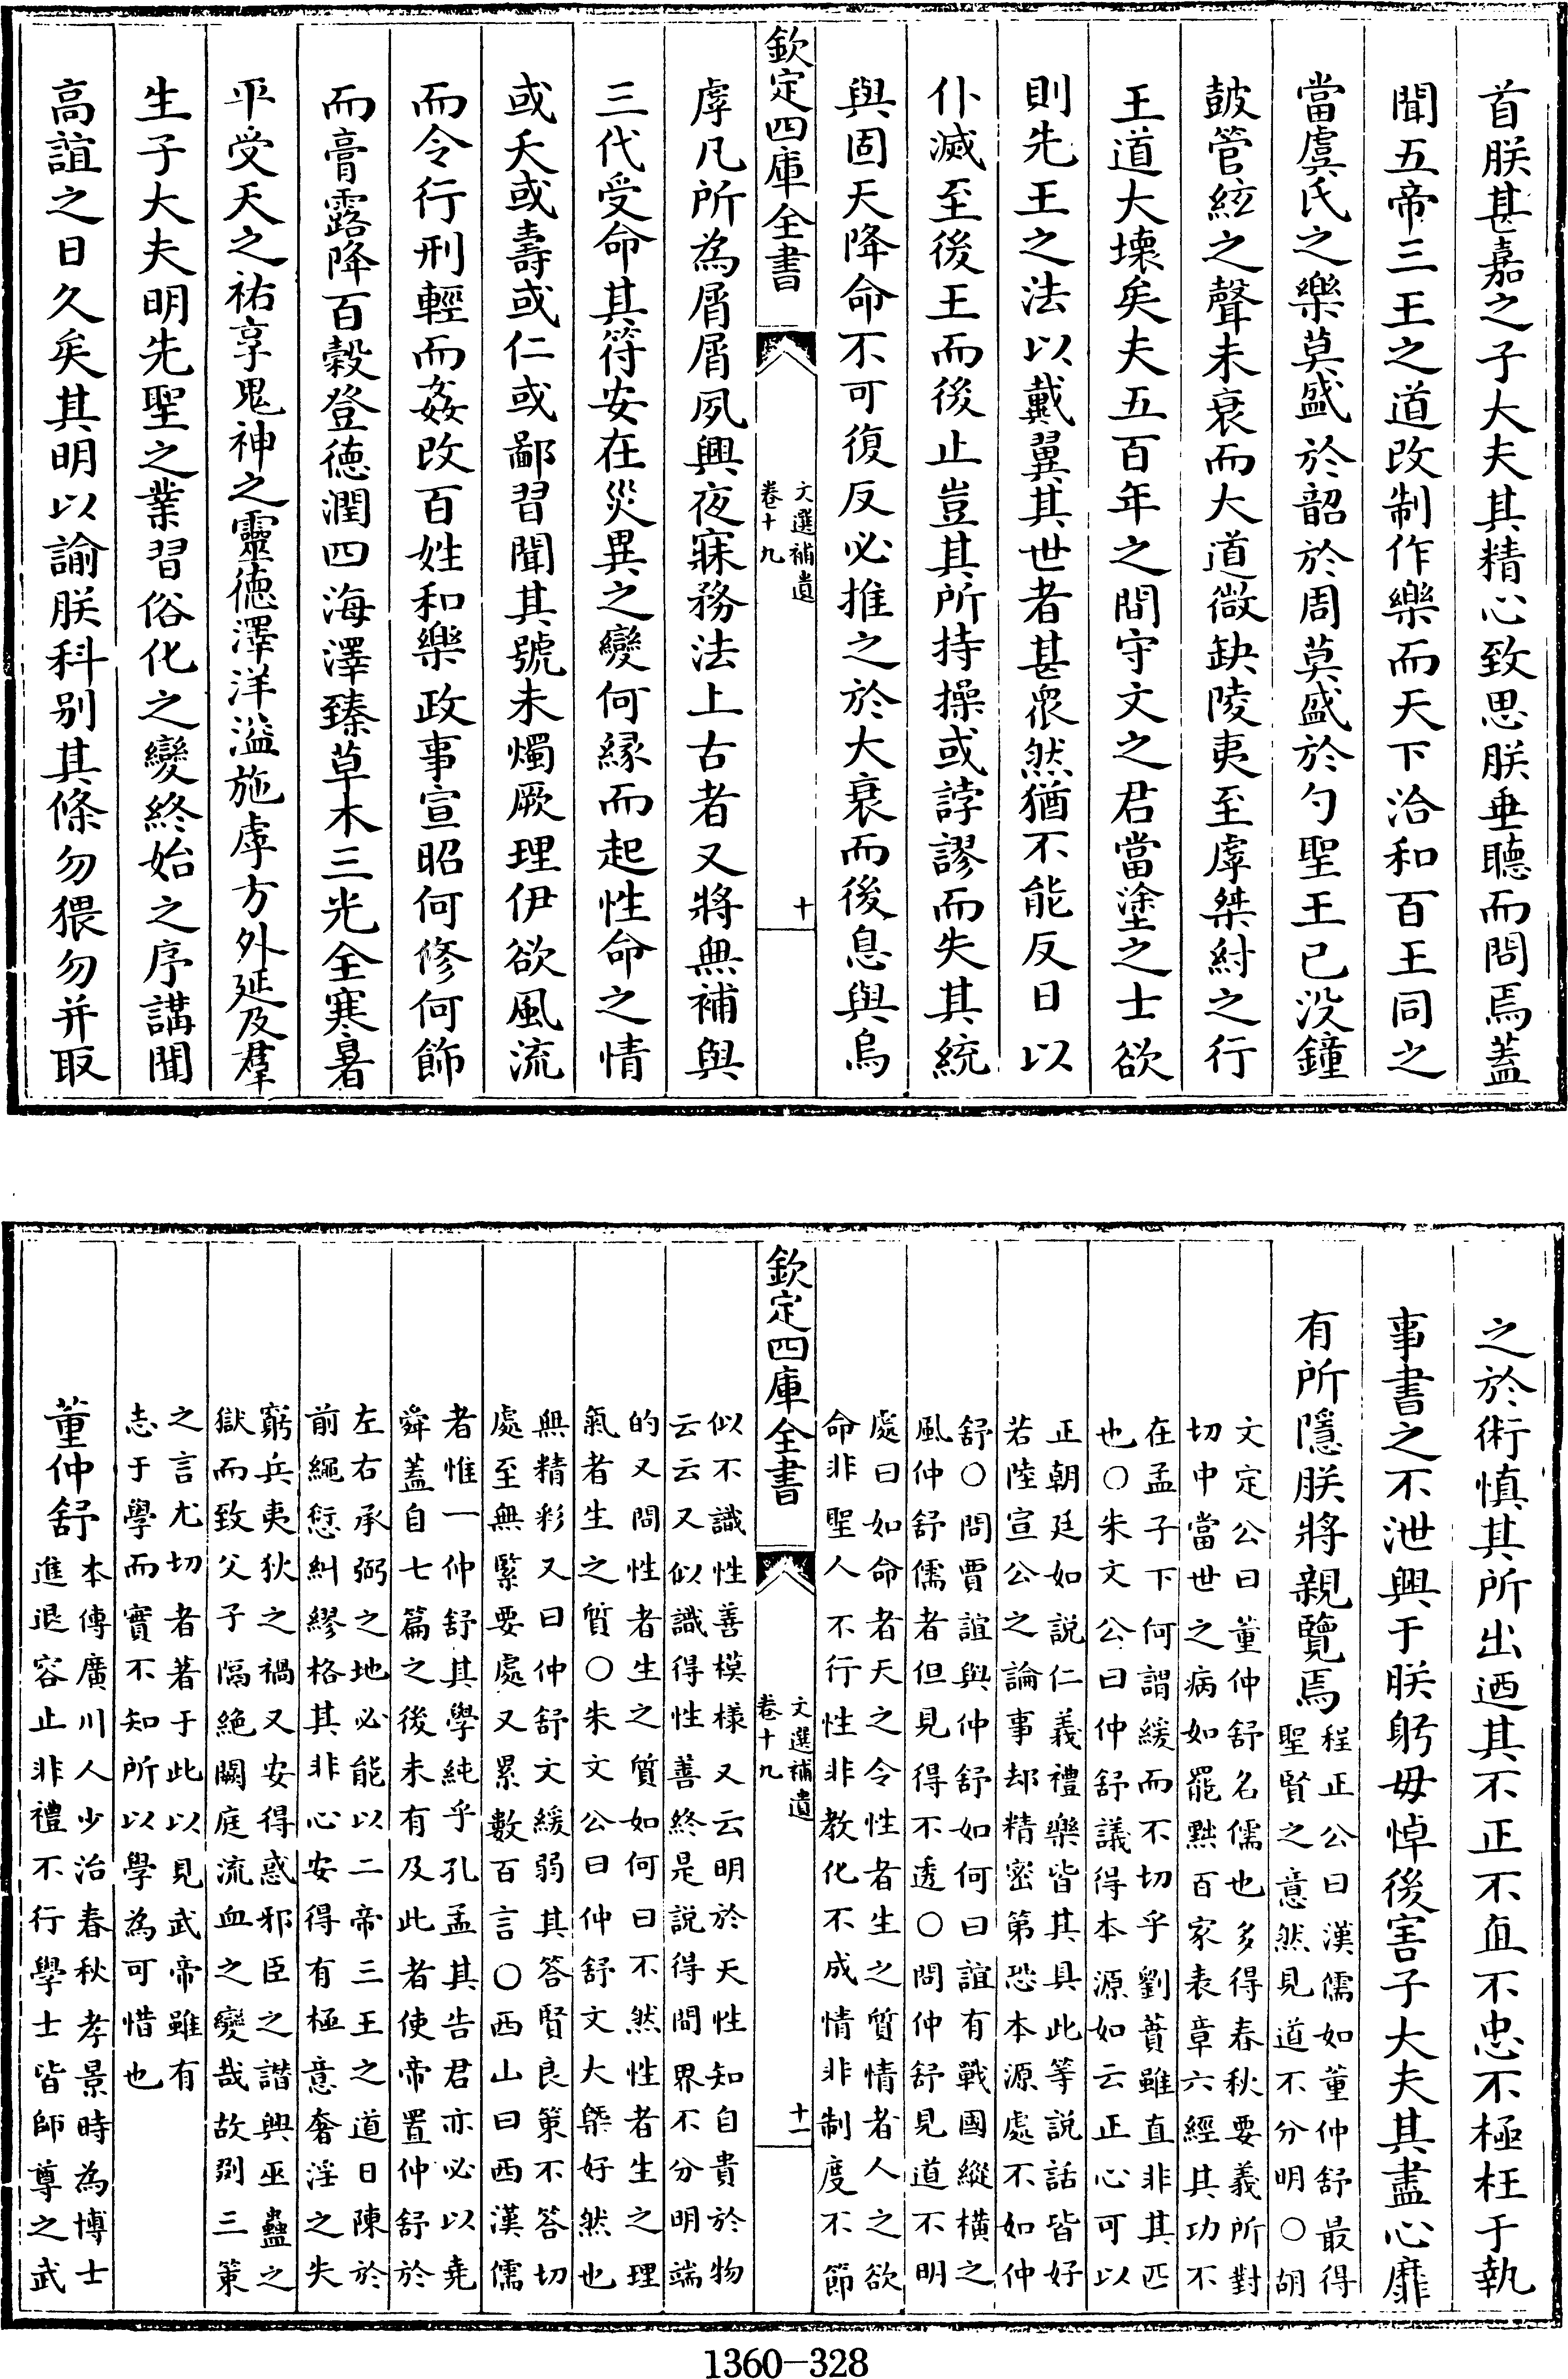 首朕甚嘉之子大夫其精心致思朕垂聽而問焉蓋
聞五帝三王之道改制作樂而天下洽和百王同之
當虞氏之樂莫盛於韶於周莫盛於勺聖王已没鐘
鼓管絃之聲未衰而大道㣲缺陵夷至虖桀紂之行
王道大壊矣夫五百年之間守文之君當塗之士欲
則先王之法以戴翼其世者甚衆然猶不能反日以
仆滅至後王而後止豈其所持操或誖謬而失其統
與固天降命不可復反必推之於大衰而後息與烏
欽定四庫全書
文選補遺
卷十九
十
虖凡所為屑屑夙興夜寐務法上古者又將無補與
三代受命其符安在災異之變何縁而起性命之情
或夭或壽或仁或鄙習聞其號未燭厥理伊欲風流
而令行刑輕而姦改百姓和樂政事宣昭何修何飾
而膏露降百榖登德潤四海澤臻草木三光全寒暑
平受天之祐享鬼神之靈德澤洋溢施虖方外延及羣
生子大夫明先聖之業習俗化之變終始之序講聞
高誼之日久矣其明以諭朕科别其條勿猥勿并取
之於術慎其所出迺其不正不直不忠不極枉于執
事書之不泄興于朕躬毋悼後害子大夫其盡心靡
有所隱朕將親覽焉
程正公曰漢儒如董仲舒最得
聖賢之意然見道不分明○胡
文定公曰董仲舒名儒也多得春秋要義所對
切中當世之病如罷黜百家表章六經其功不
在孟子下何謂緩而不切乎劉蕡雖直非其匹
也○朱文公曰仲舒議得本源如云正心可以
正朝廷如説仁義禮樂皆其具此等説話皆好
若陸宣公之論事却精密第恐本源處不如仲
舒○問賈誼與仲舒如何曰誼有戰國縱横之
風仲舒儒者但見得不透○問仲舒見道不明
處曰如命者天之令性者生之質情者人之欲
命非聖人不行性非教化不成情非制度不節
欽定四庫全書
文選補遺
卷十九
十一
似不識性善模様又云明於天性知自貴於物
云云又似識得性善終是説得間界不分明端
的又問性者生之質如何曰不然性者生之理
氣者生之質○朱文公曰仲舒文大槩好然也
無精彩又曰仲舒文緩弱其答賢良策不答切
處至無緊要處又累數百言○西山曰西漢儒
者惟一仲舒其學純乎孔孟其告君亦必以堯
舜蓋自七篇之後未有及此者使帝置仲舒於
左右承弼之地必能以二帝三王之道日陳於
前繩愆糾繆格其非心安得有極意奢淫之失
窮兵夷狄之禍又安得惑邪臣之譖興巫蠱之
獄而致父子隔絶闕庭流血之變哉故剟三策
之言尤切者著于此以見武帝雖有
志于學而實不知所以學為可惜也
董仲舒
本傳廣川人少治春秋孝景時為博士
進退容止非禮不行學士皆師尊之武
1360-328